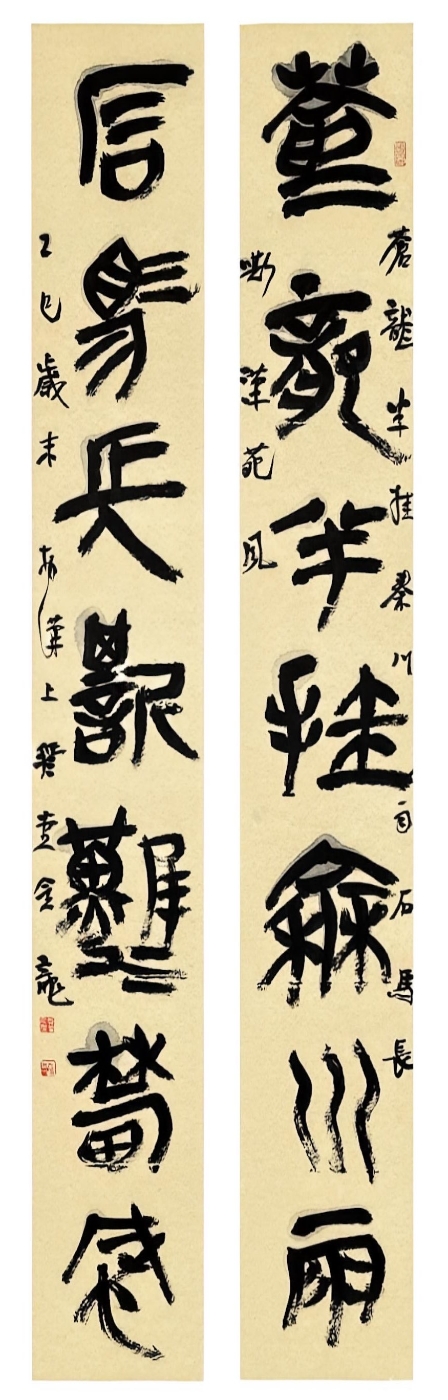 蒼龍半挂秦川雨
蒼龍半挂秦川雨石馬長
嘶漢苑風
石馬長嘶漢苑風
乙巳歲末於漢上